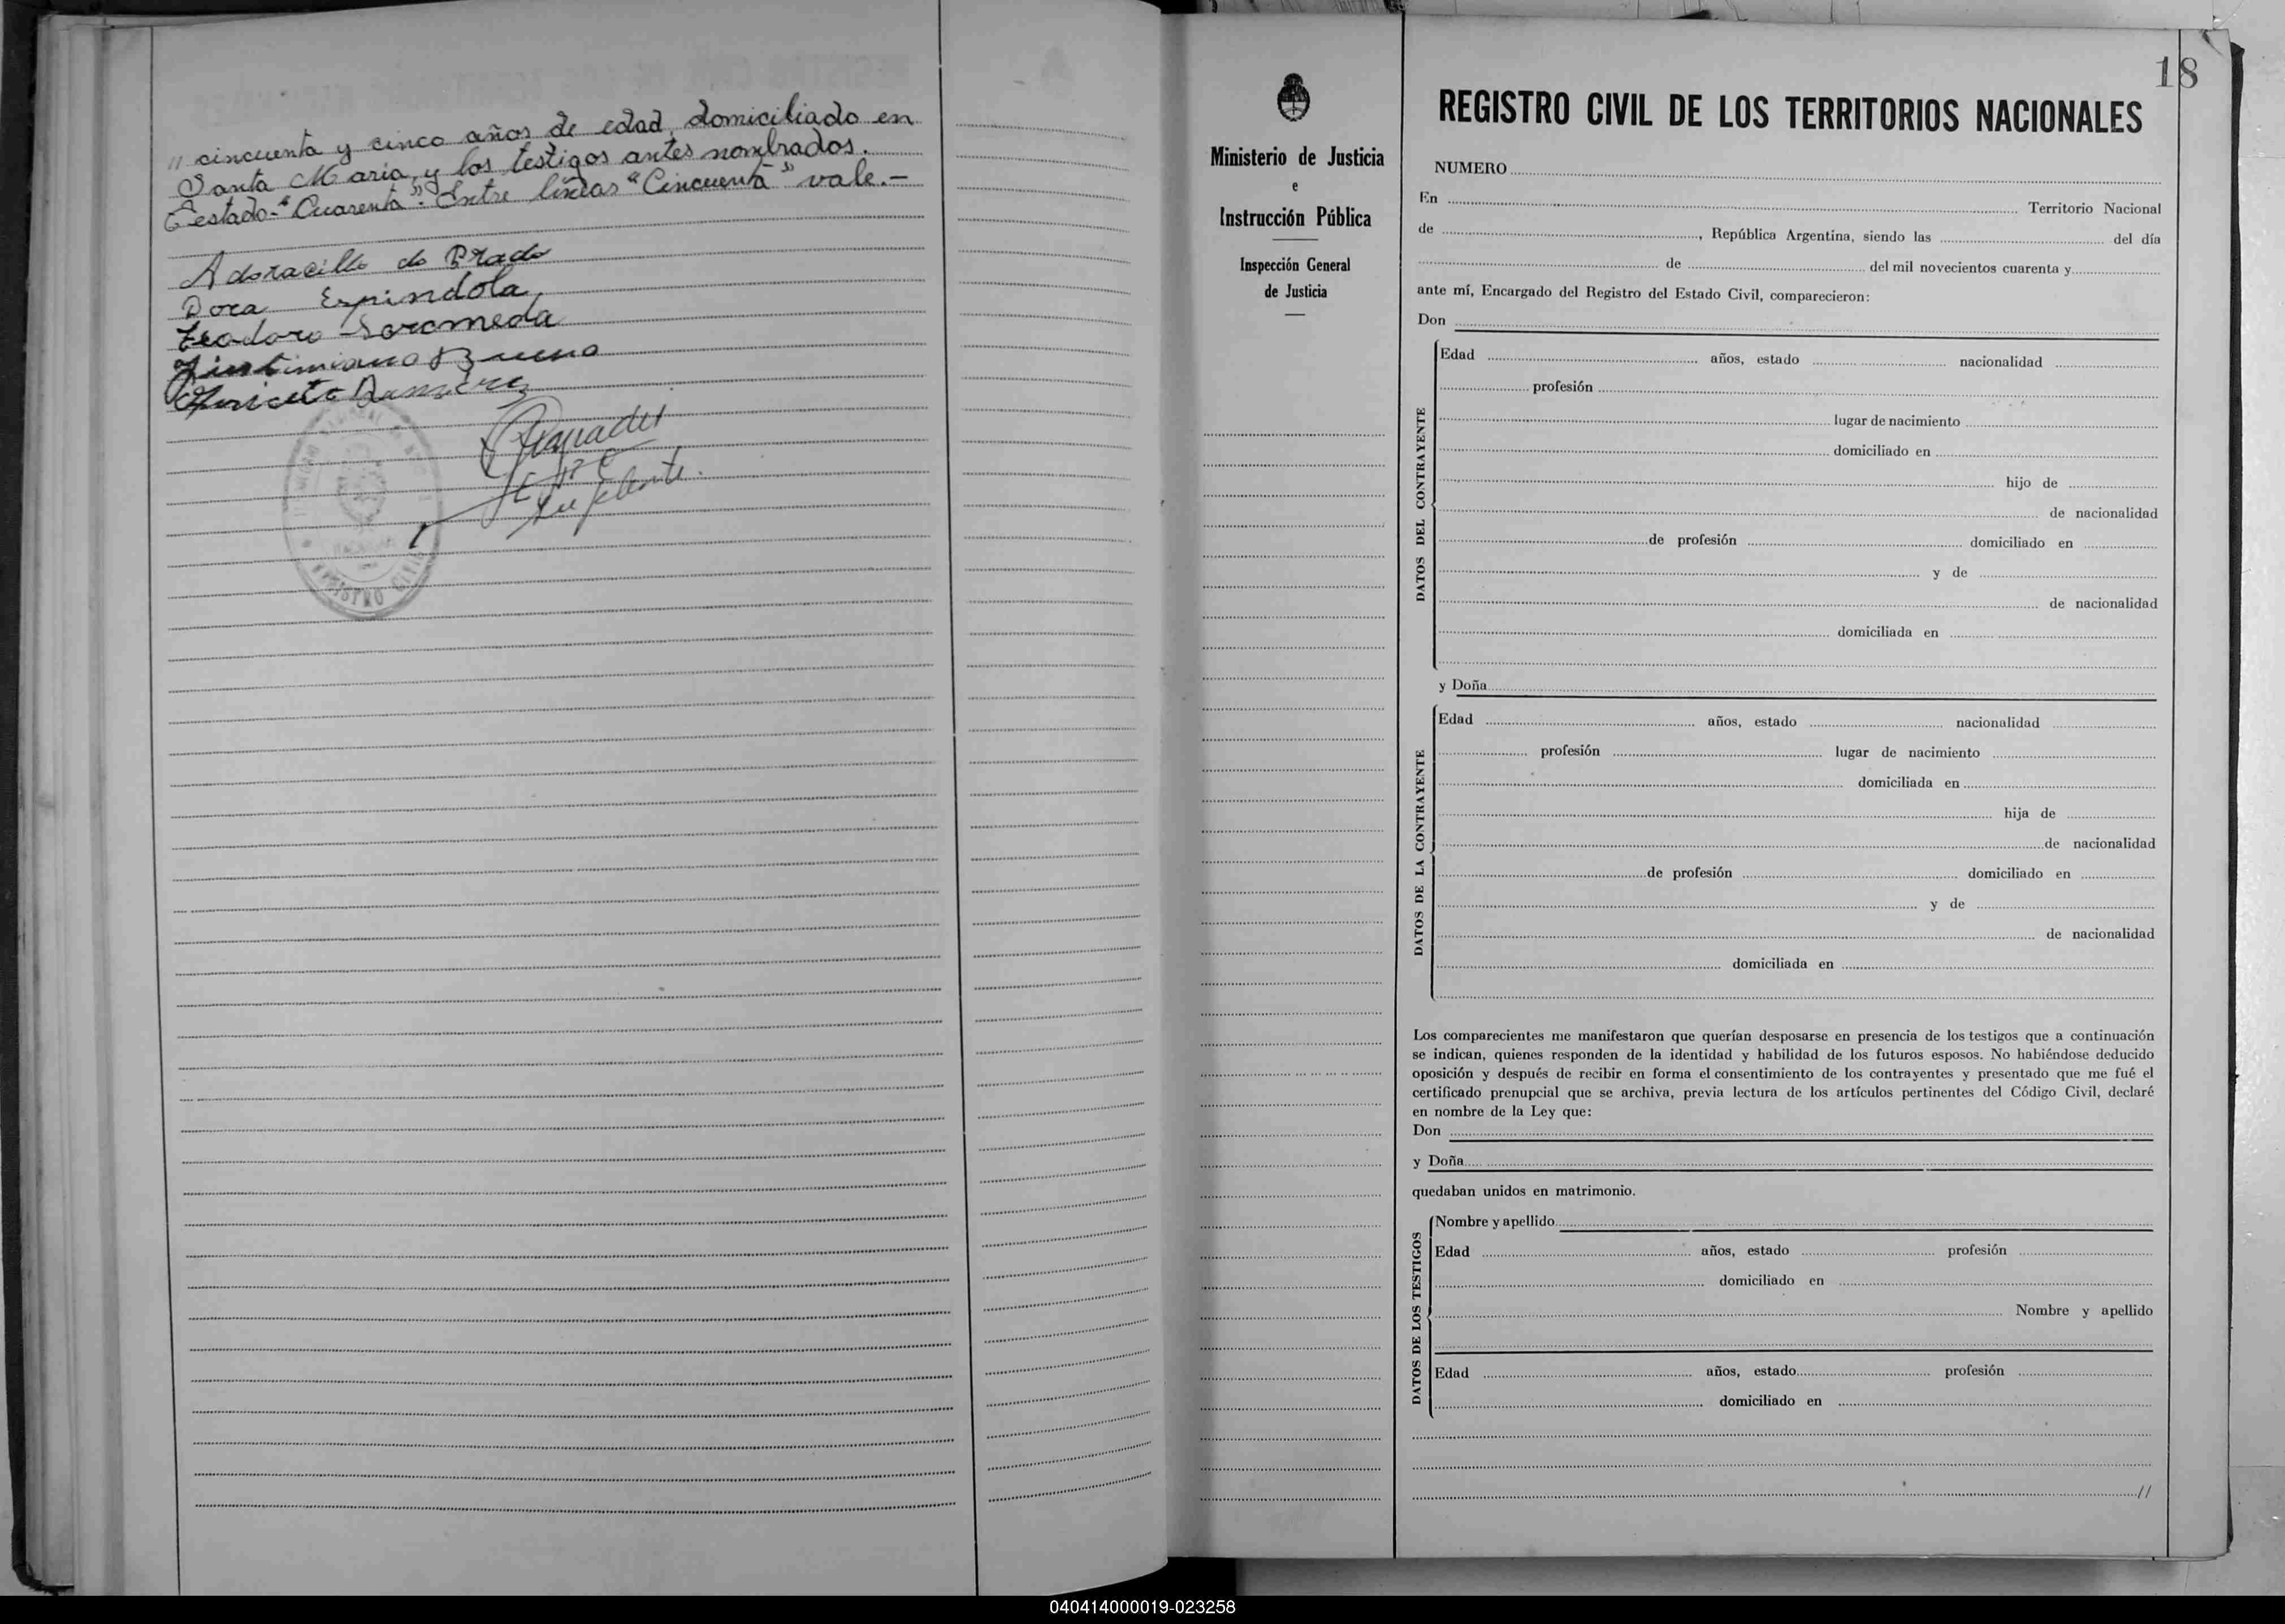 " cincuenta y cinco años de edad, domiciliado en
Santa Maria, y los testigos antes nombrados.
Testado-"Cuarenta". Entre líneas "Cincuenta" vale.-
do Prado
Dora Espindola
Teodoro
Bueno
Suplente.
REGISTRO CIVIL
18
Ministerio de Justicia
e
Instrucción Pública
Inspección General
de Justicia
REGISTRO CIVIL DE LOS TERRITORIOS NACIONALES
NUMERO
En Territorio Nacional
de , República Argentina, siendo las del día
de del mil novecientos cuarenta y
ante mí, Encargado del Registro del Estado Civil, comparecieron:
Don
DATOS DEL CONTRAYENTE
Edad años, estado nacionalidad
profesión
lugar de nacimiento
domiciliado en
hijo de
de nacionalidad
de profesión domiciliado en
y de
de nacionalidad
domiciliada en
y Doña
DATOS DE LA CONTRAYENTE
Edad años, estado nacionalidad
profesión lugar de nacimiento
domiciliada en
hija de
de nacionalidad
de profesión domiciliado en
y de
de nacionalidad
domiciliada en
Los comparecientes me manifestaron que querían desposarse en presencia de los testigos que a continuación
se indican, quienes responden de la identidad y habilidad de los futuros esposos. No habiéndose deducido
oposición y después de recibir en forma el consentimiento de los contrayentes y presentado que me fué el
certificado prenupcial que se archiva, previa lectura de los artículos pertinentes del Código Civil, declaré
en nombre de la Ley que:
Don
y Doña
quedaban unidos en matrimonio.
DATOS DE LOS TESTIGOS
Nombre y apellido
Edad años, estado profesión
domiciliado en
Nombre y apellido
Edad años, estado profesión
domiciliado en
//
040414000019-023258